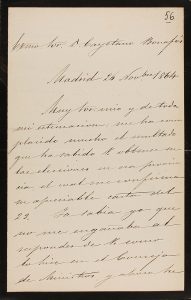 56
Exmo Sor. D. Cayetano Bonafós
Madrid 24 Novbre 1864
Muy Sor mio y de toda
mi estimacion: me ha com
placido mucho el resultado
que ha sabido V. obtener en
las elecciones en esa provin
cia el cual me confirma
su apreciable carta del
22. Ya sabia yo que
no me engañaba al
responder de V. como
lo hice en el Consejo
de Ministros y ahora he